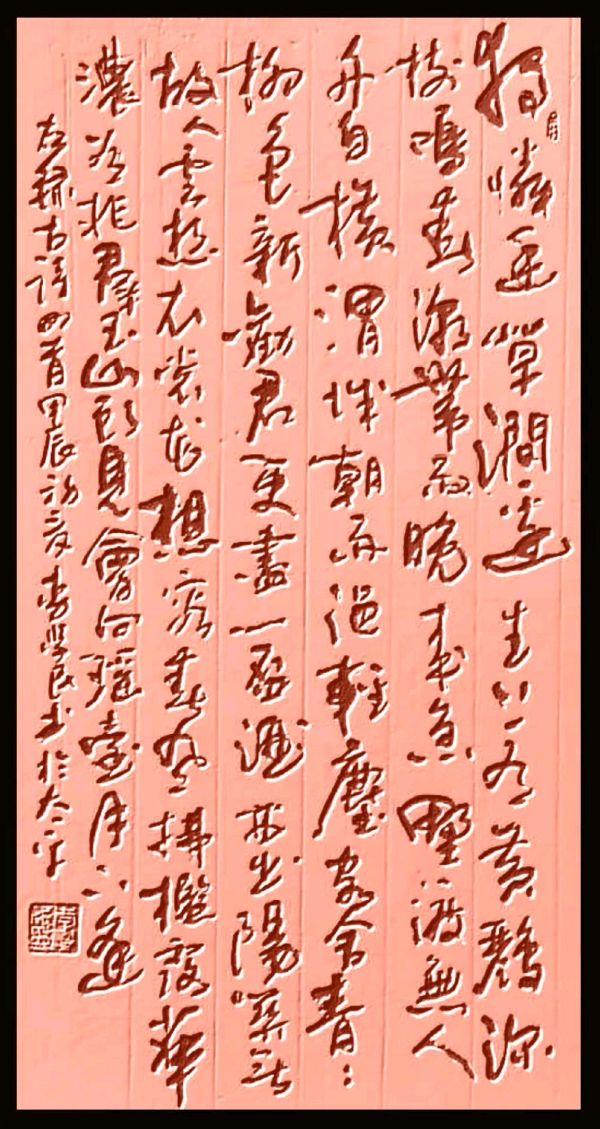 獨憐幽草澗邊生上有黃鸝深
樹鳴春潮帶雨晚來急野渡無人
舟自橫渭城朝雨浥輕塵客舍青:
柳色新勸君更盡一杯酒西出陽關無
故人雲想衣裳花想容春風拂檻露華
濃若非群玉山頭見會向瑤臺月下逢
右錄古詩四首甲辰初夏李学民书於太平